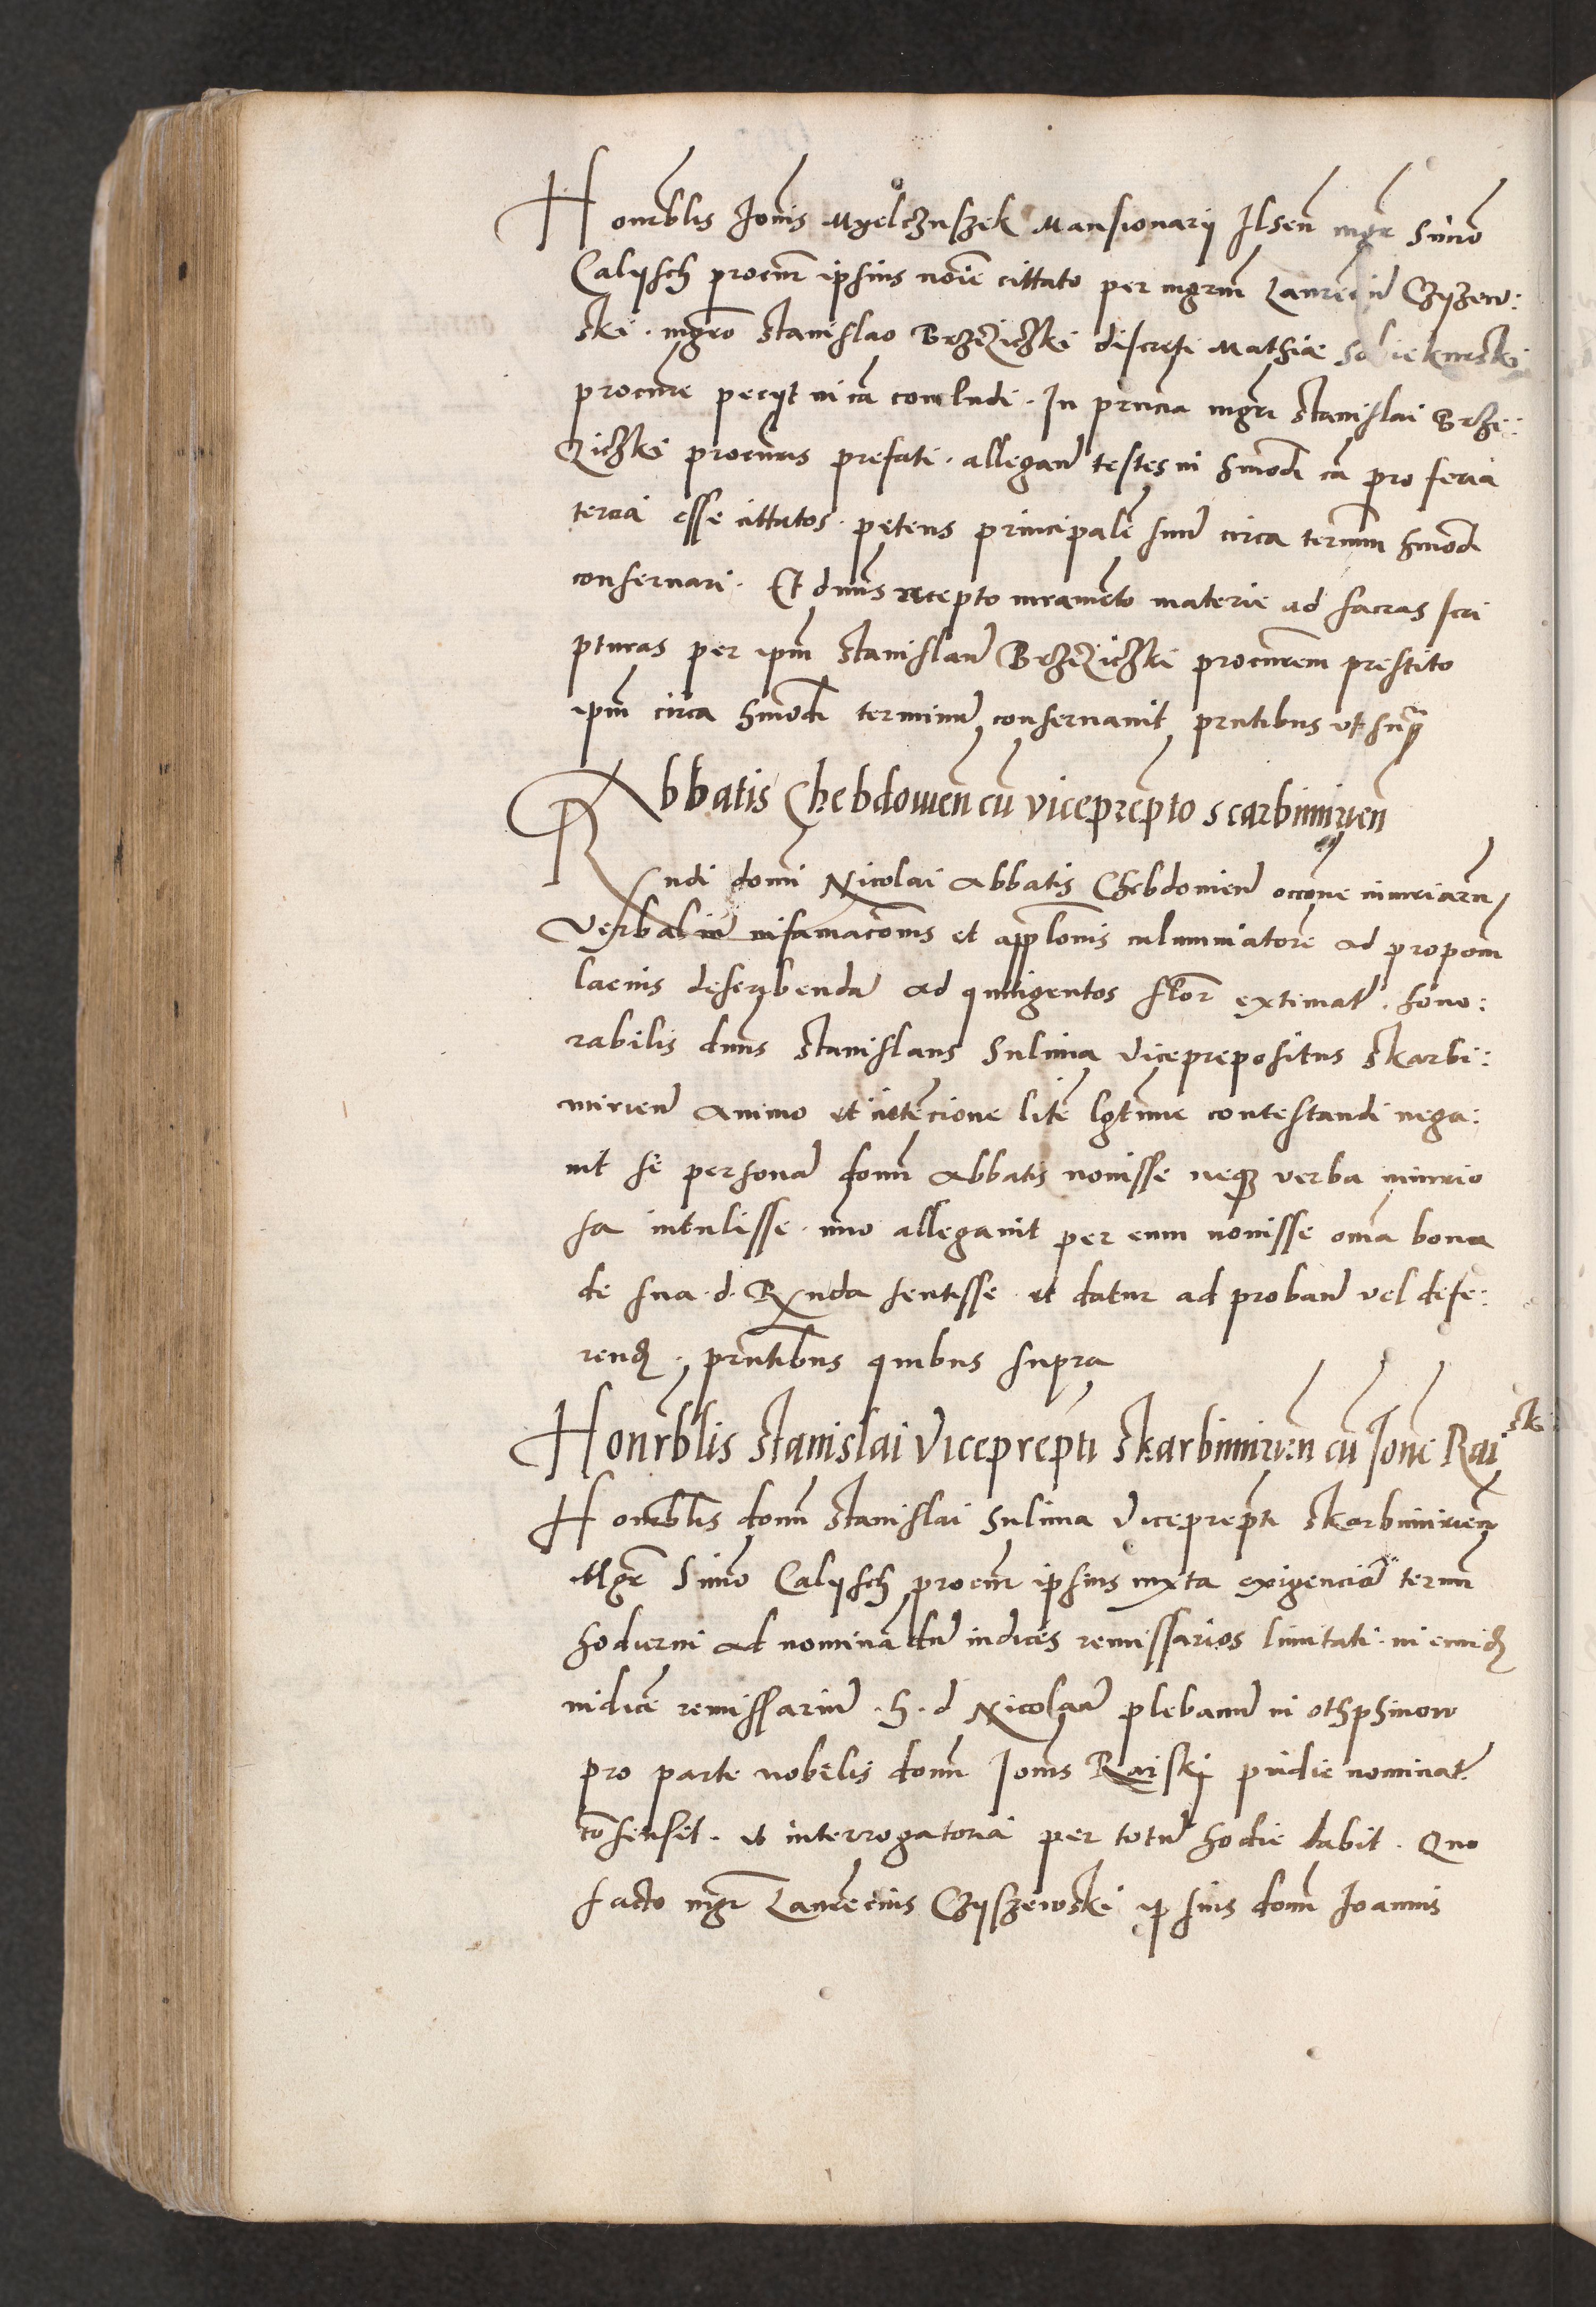 Honrblis Joãnis Myelczuszek Mansionarij Ilsen̄ mgr̄ Simo
Calijsch procur̄ ipsius noīe cittato per mgrm̄ Laurēciū Czyzew:
ski. mgrō Stanislao Brzeziczki discreti Mathiæ
procure peciit in cā concludi. In pr̄ncia mgri Stanislai Brze:
ziczki procuris prefati. allegan̄ testes in hmōdi cā pro feria
tercia esse cittatos. petens principalē suū circa terminū hmōdi
conservari. Et dnūs recepto iuramēto materie ad sacras scri
pturas per ipm̄ Stanislaū Brzeziczki procurem prestito
ipm̄ circa hmōdi terminū conservavit pr̄ntibus ut supra
Abbatis Chebdowen̄ cū viceprep̄to Scarbimirien̄
Rx̄ndi domī Nicolai Abbatis Chebdovien̄ occōne iniuriarū
Verbaliū infamacōnis et applōnis calumniatore ad propom̄
laevis describendā ad quingentos flor̄ extimat̄. hono:
rabilis dnūs Stanislaus Sulima Viceprepositus Skarbi:
mirien̄ animo et intēcione litē lgt̄ime contestandi nega:
vit se personā domī Abbatis novisse neqз verba iniurio
sa intulisse. imo allegavit per eum novisse oīa bona
de sua d. Rx̄nda sentisse et datur ad proban̄ vel defe:
rend. pr̄ntibus quibus supra
Honrblis Stanislai Viceprepti Skarbimirien̄ cū Joñe Raiski
Honrblis domī Stanislai Sulima Viceprep̄ti Skarbimirien̄
Mgr̄ Simō Calijsch procur̄ ipsius iuxta exigenciā termī
hodierni ad nominādū iudicēs remissarios limitati. in eund
iudicē remissariū. h. d Nicolaū plebanū in othphinow
pro parte nobilis domī Joãnis Raiski pridie nominat̄
cōsensit. et interrogatoria per totū hodie dabit. Quo
facto mgr̄ Laurēcius Czyszewski ipsius domī Joannis